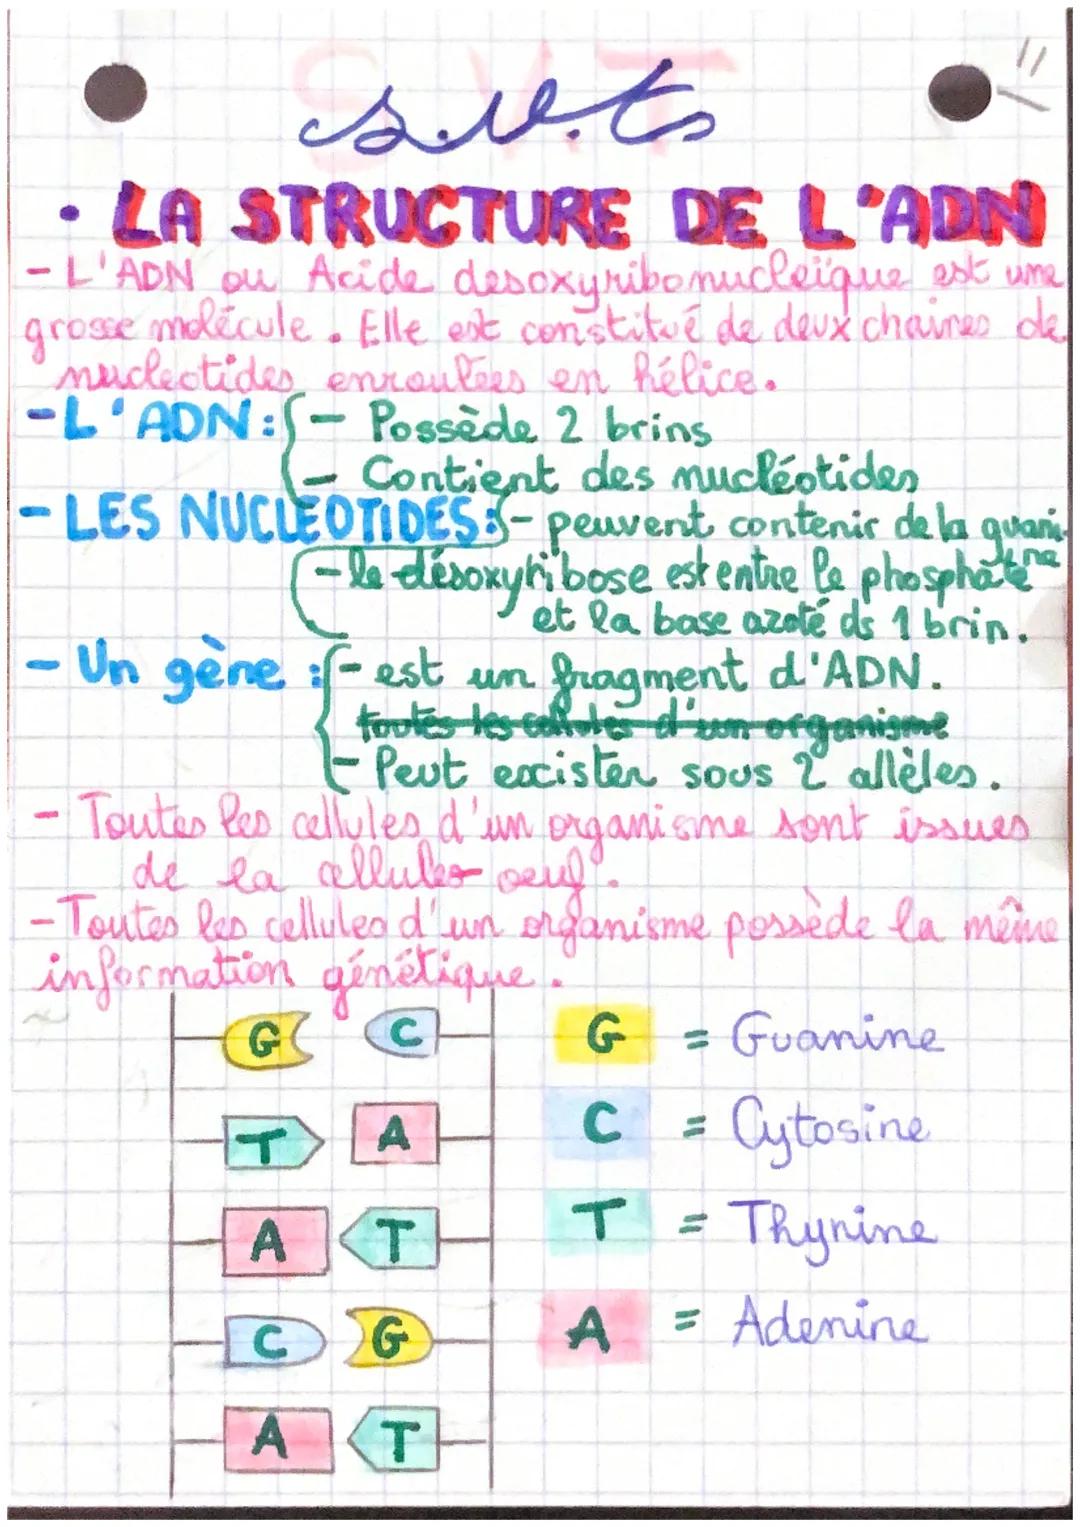 S.V.T
s.v.t
• LA STRUCTURE DE L'ADN
- L'ADN ou Acide desoxyribonucleïque est une
grosse molécule. Elle est constitué de deux chaines de
nucleotides enroulées en hélice.
- L'ADN: - Possède 2 brins
- Contient des nucléotides
- LES NUCLEOTIDES: - peuvent contenir de la guani-
ne
- le désoxyribose est entre le phosphate
et la base azoté ds 1 brin.
- Un gène : - est un fragment d'ADN.
toutes les cellules d'un organisme
- Peut excister sous 2 allèles.
- Toutes les cellules d'un organisme sont issues
de la cellules-oeuf.
- Toutes les cellules d'un organisme possède la même
information génétique.
G C G = Guanine
T A C = Cytosine
A T T = Thynine
C G A = Adenine
A T